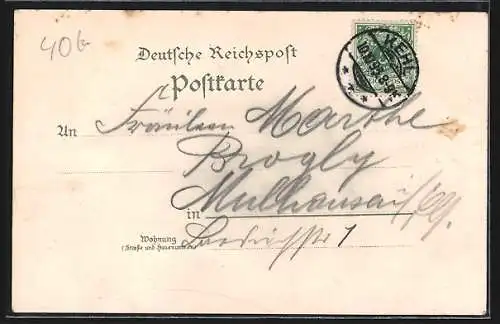 40G
KEHL
Deutsche Reichspost
Postkarte
An Fräulein Marthe
Brogly
Mulhausen i/Els.
in
Wohnung
(Straße und Hausnummer)
1